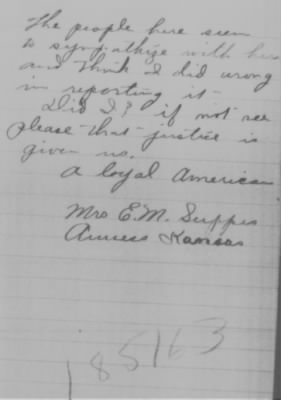 The people here seem
to sympathize with her
and think I did wrong
in reporting it
Did I? if not see
please that justice is
given us.
a loyal American
Mrs E.M. Suppes
Anness Kansas
185163